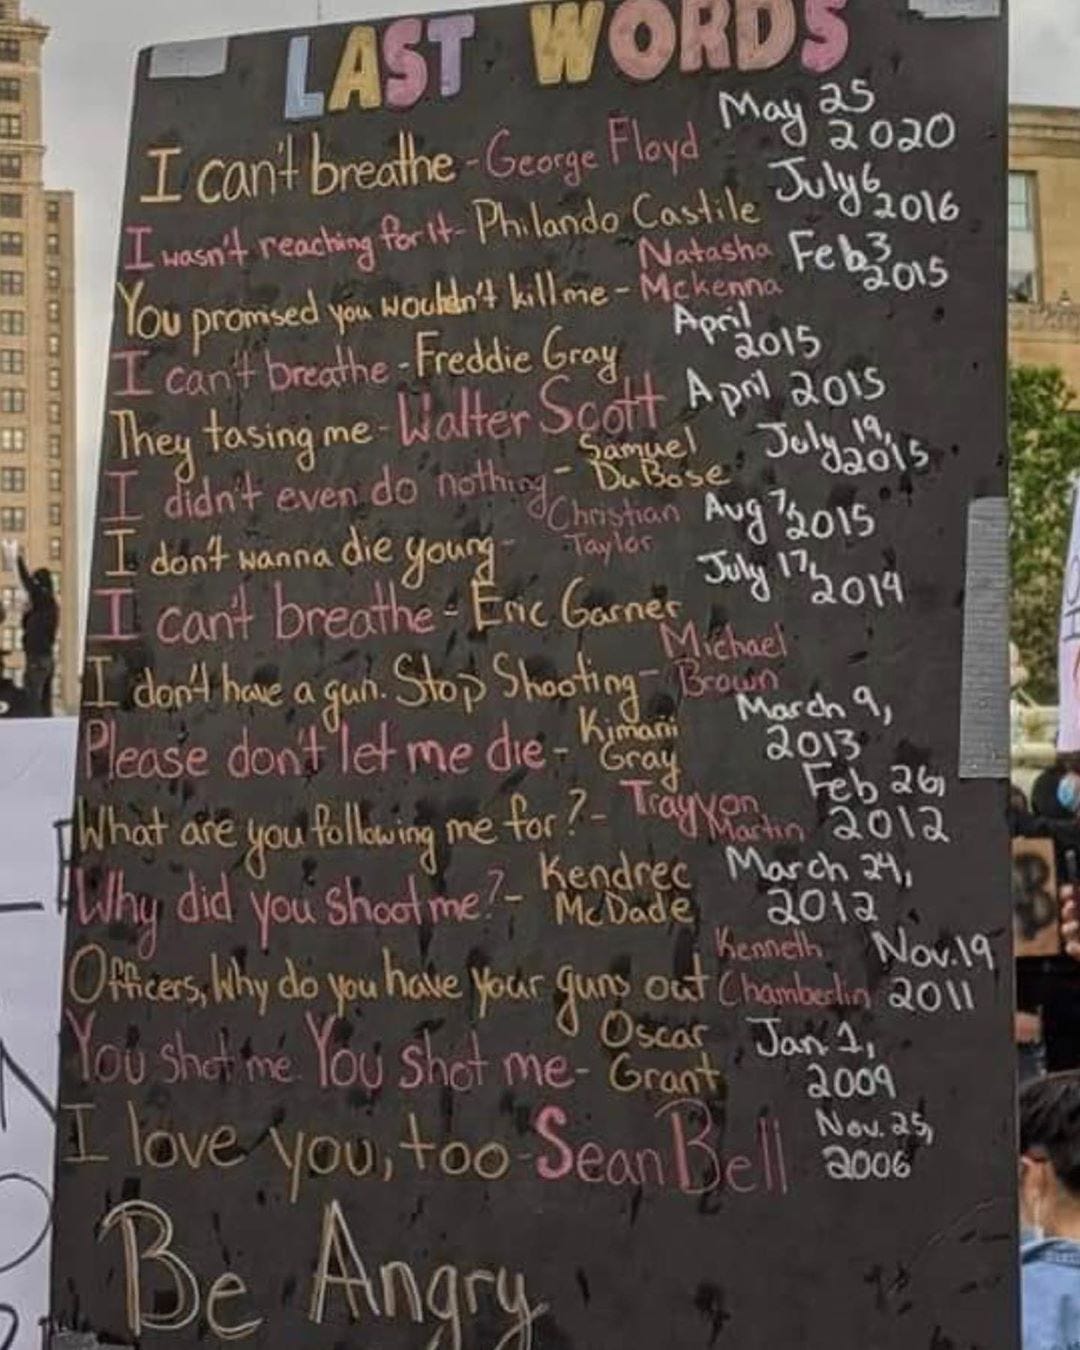 LAST WORDS
I can't breathe - George Floyd May 25 2020
I wasn't reaching for it - Philando Castile July 6 2016
You promised you wouldn't kill me - Natasha Mckenna Feb 3 2015
I can't breathe - Freddie Gray April 2015
They tasing me - Walter Scott April 2015
I didn't even do nothing - Samuel DuBose July 19, 2015
I don't wanna die young - Christian Taylor Aug 7, 2015
I can't breathe - Eric Garner July 17, 2014
I don't have a gun. Stop Shooting - Michael Brown
Please don't let me die - Kimani Gray March 9, 2013
What are you following me for? - Trayvon Martin Feb 26, 2012
Why did you shoot me? - Kendrec McDade March 24, 2012
Officers, Why do you have your guns out Kenneth Chamberlin Nov. 19 2011
You shot me You shot me - Oscar Grant Jan 1, 2009
I love you, too - Sean Bell Nov. 25, 2006
Be Angry